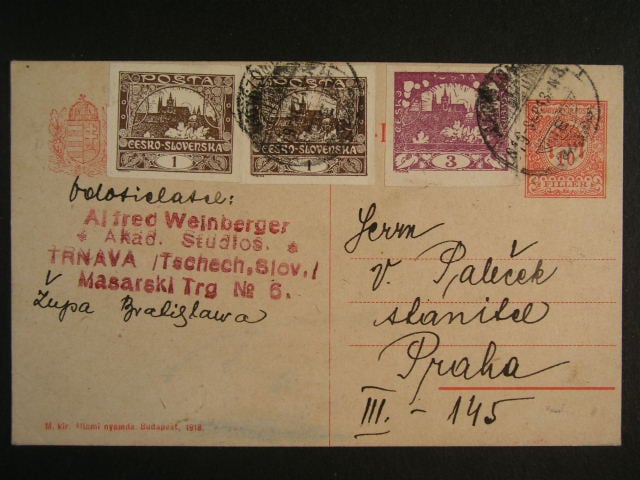 POSTA
ČESKO-SLOVENSKA
1
POSTA
ČESKO-SLOVENSKA
1
3
10
FILLER
odosielatel:
Alfred Weinberger
* Akad. Studios. *
TRNAVA /Tschech,Slov./
Masarski Trg № 6.
Župa Bratislawa
Herrn
v. Paleček
stanitel
Praha
III. - 145
M. kir. állami nyomda. Budapest, 1918.